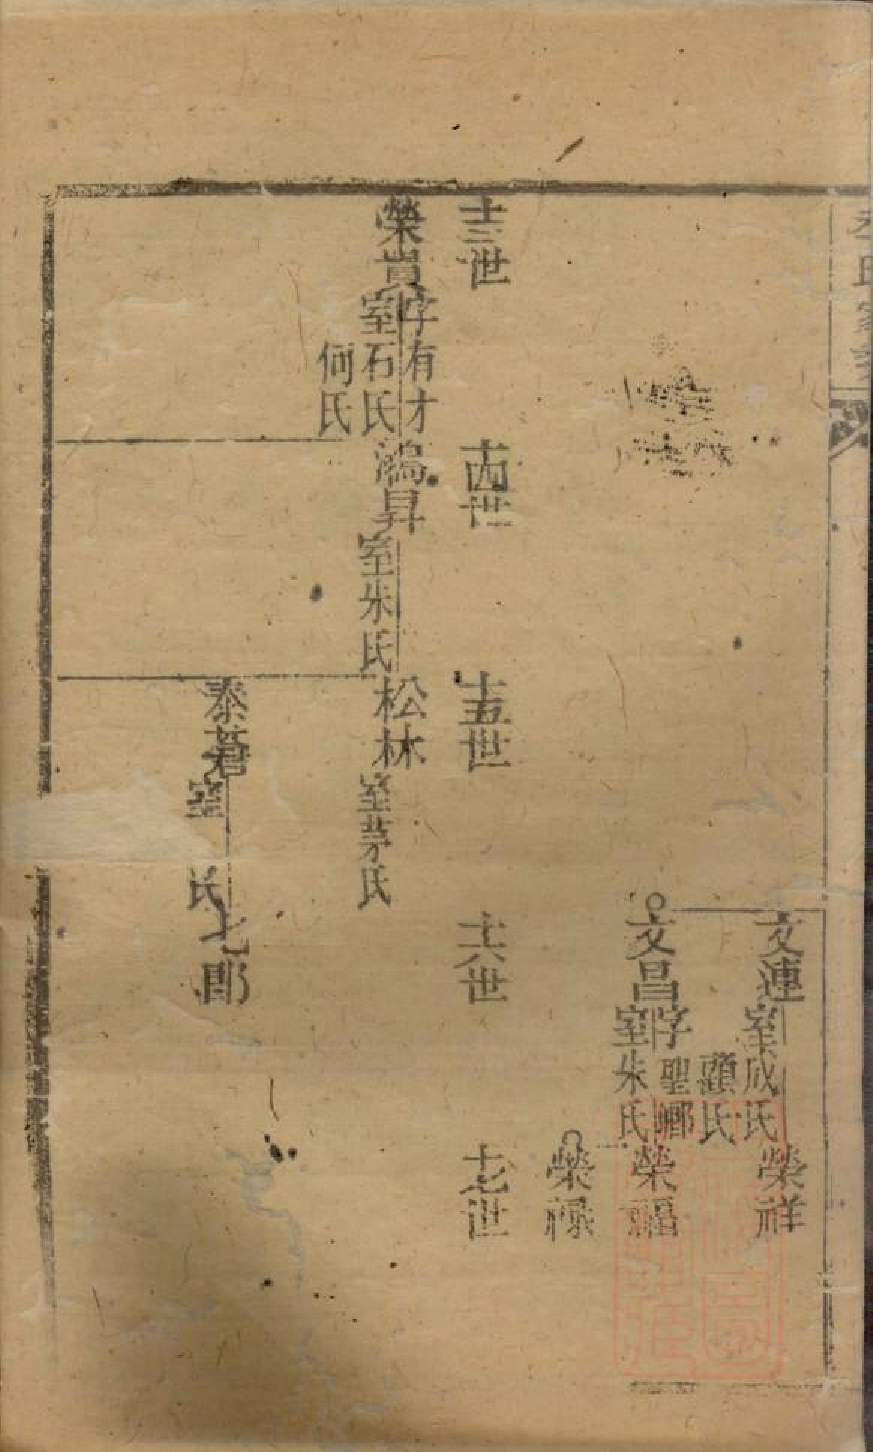 氏家
文連 室成氏
顧氏
榮祥
文昌 字聖鄉
室朱氏
榮福
榮祿
十三世
十四世
十五世
十六世
十七世
榮貴 字有才
室石氏
何氏
鴻昇
室朱氏
松林
室茅氏
泰
室 氏
七郎